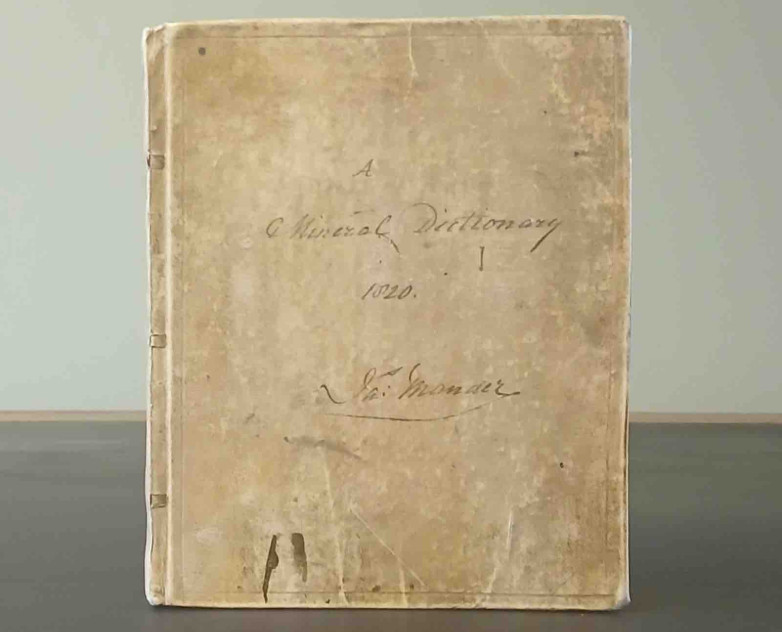 A
Mineral Dictionary
1820.
Jas: Mander